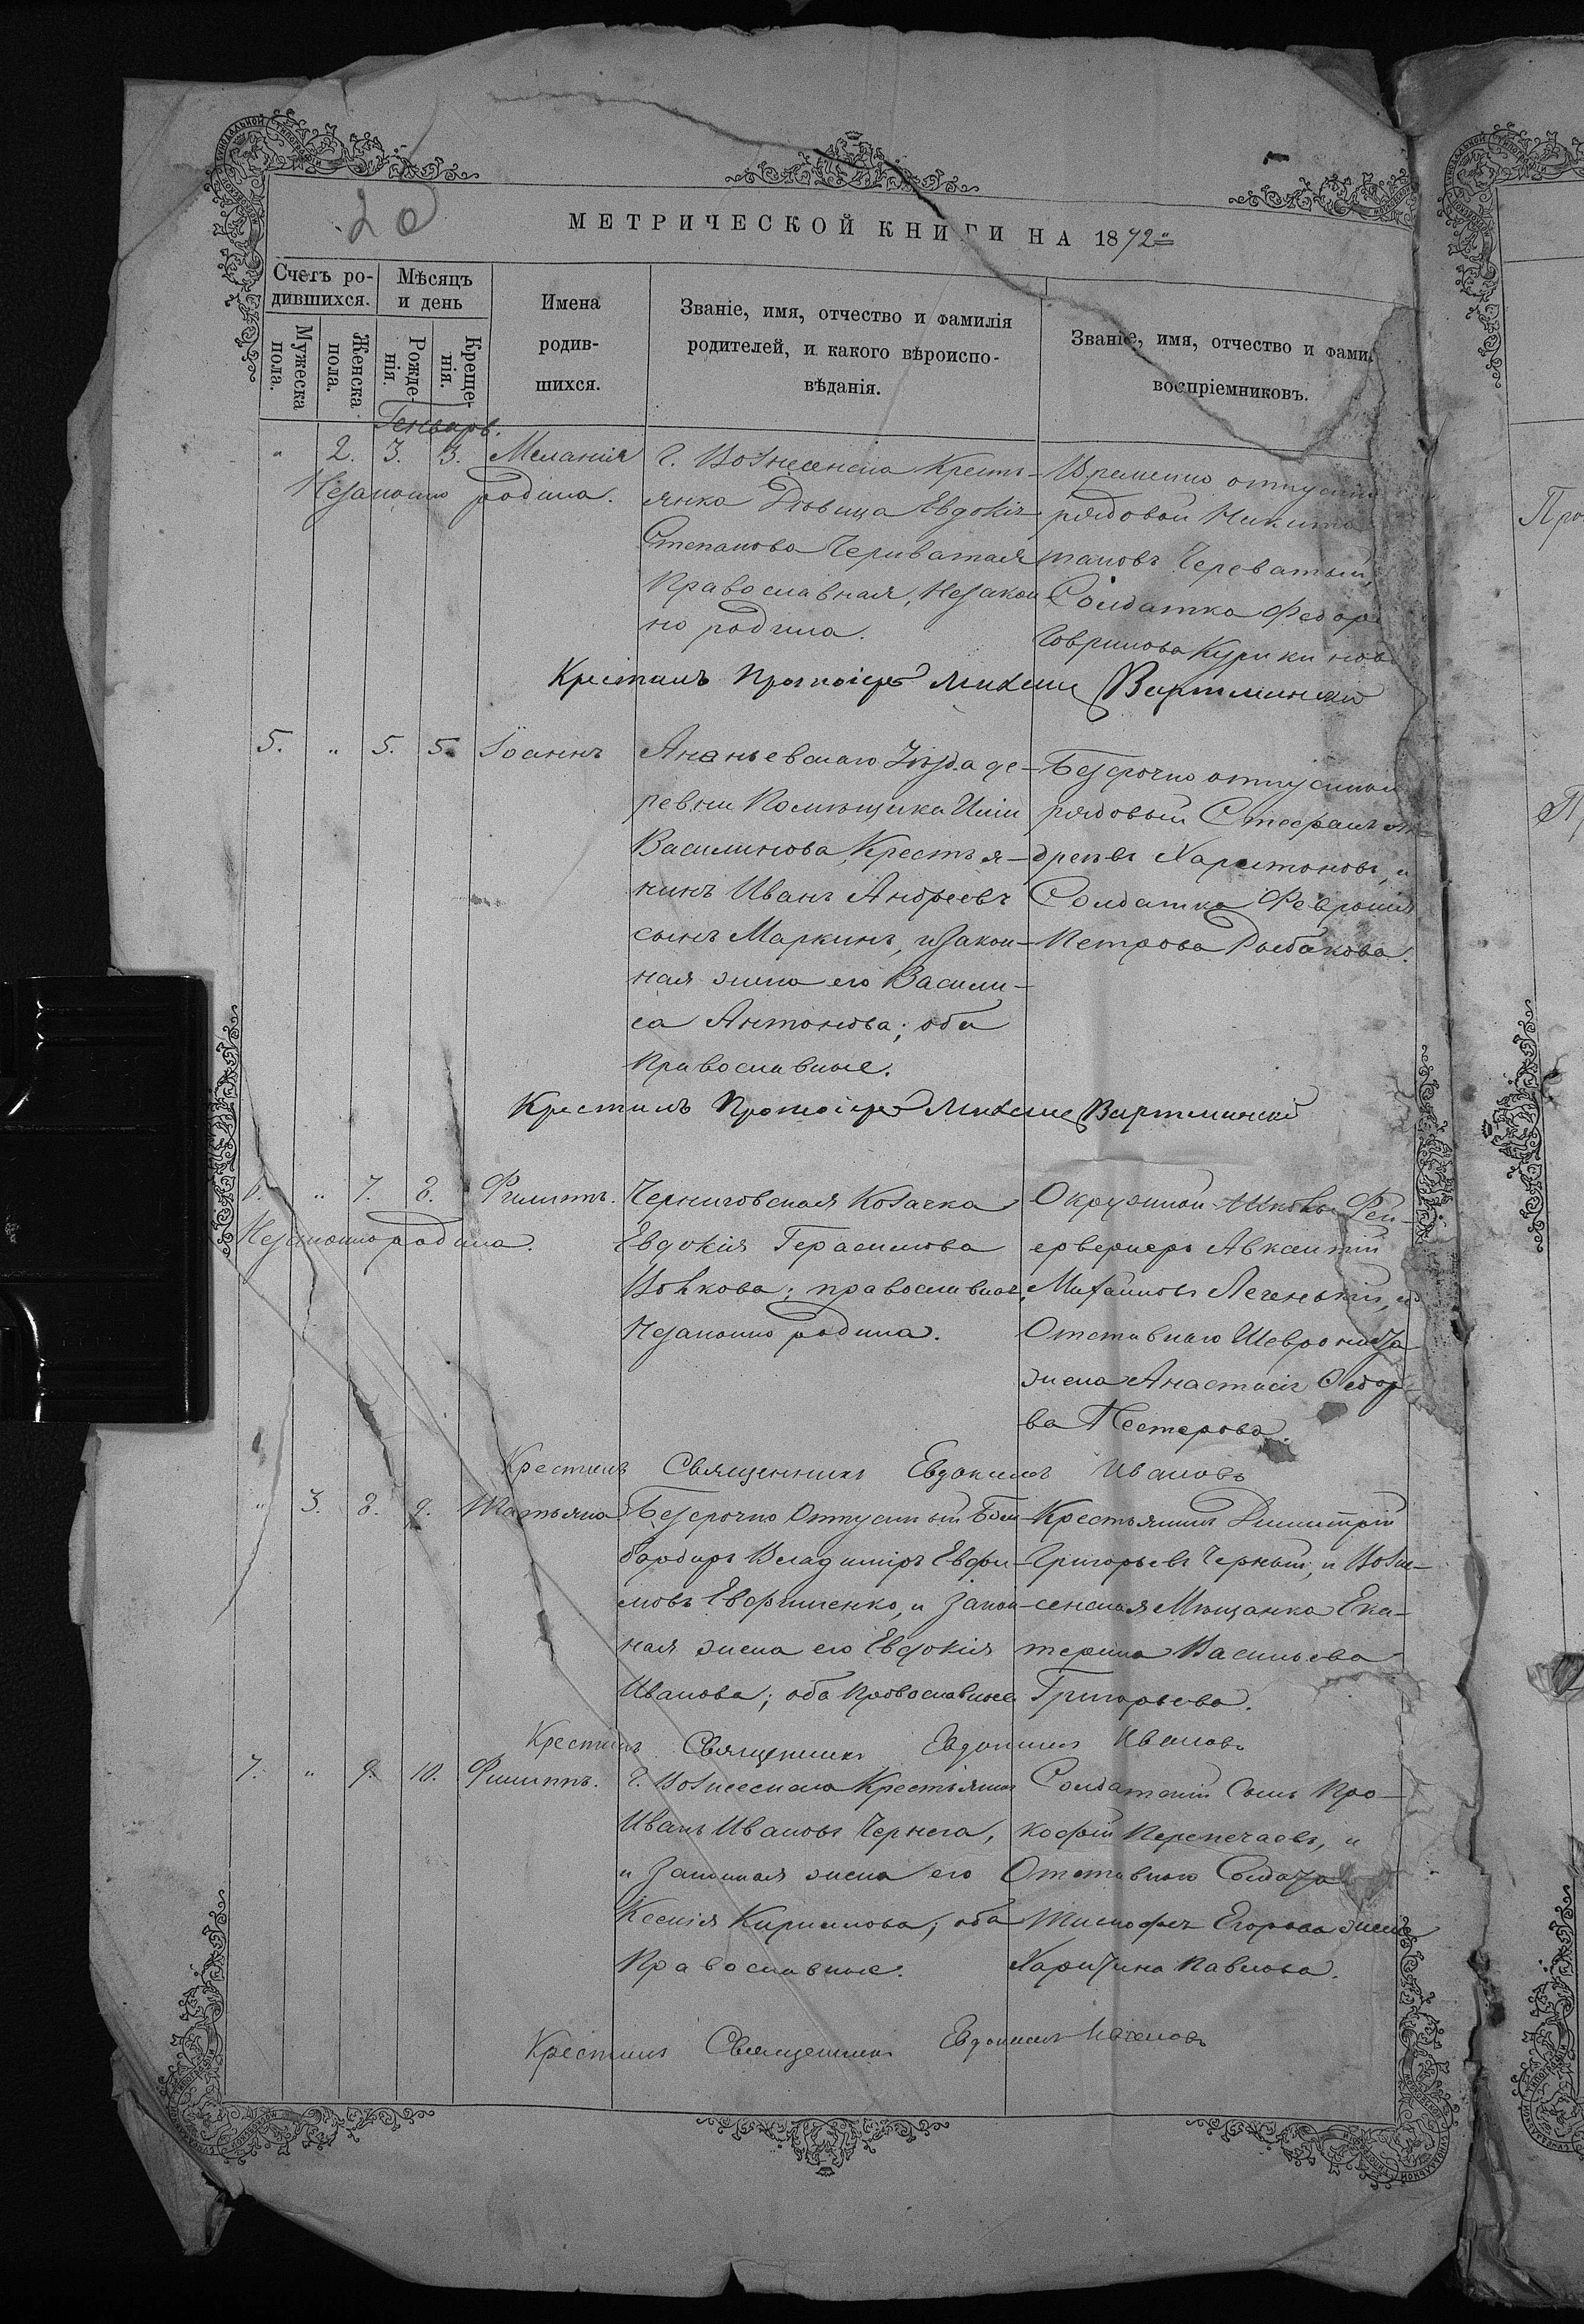 20
МЕТРИЧЕСКОЙ КНИГИ НА 1872
Счетъ ро-
дившихся.
Мужеска
пола.
Женска
пола.
Мѣсяцъ
и день
Рожде-
нія.
Креще-
нія.
Имена
родив-
шихся.
Званіе, имя, отчество и фамилія
родителей, и какого вѣроиспо-
вѣданія.
Званіе, имя, отчество и фами
воспріемниковъ.
Генварь.
" 2. 3. 3. Меланія
Незаконно родила.
Г. Вознесенска Кресть-
янка Дѣвица Евдокія
Степанова Череватая
Православная, Незакон
но родила.
Временно отпускн
рядовой Никита
пановъ Череватый,
Солдатка Федор
Гаврилова
Крестилъ Протоіерей Михаилъ
5. " 5. 5. Іоаннъ
Ананьевскаго Уѣзда де-
ревни Помѣщика
Василинова, Крестья-
нинъ Иванъ Андреевъ
сынъ Маркинъ, и закон-
ная жена его Васили-
са Антонова; оба
Православные.
Безсрочно отпускной
рядовый Стефанъ Ан-
дреевъ Харитоновъ, и
Солдатка Февронія
Петрова Рыбакова.
Крестилъ Протоіерей Михаилъ
6. " 7. 8. Филиппъ.
Незаконно родила.
Черниговская Козачка
Евдокія Герасимова
Волкова; православная,
Незаконно родила.
Окружной Школы Фей-
ерверкеръ Авксентій
Михайловъ Легенькій, и
Отставнаго
жена Анастасія Федор
ва Нестерова.
Крестилъ Священникъ Евдокимъ Ивановъ
" 3. 8. 9. Татьяна
Безсрочно Отпускный Бом-
бардиръ Владиміръ Евфи-
мовъ Евфименко, и закон-
ная жена его Евдокія
Иванова; оба Православные
Крестьянинъ Димитрій
Григорьевъ Черный, и Возне-
сенская Мѣщанка Ека-
терина Васильева
Григорьева.
Крестилъ Священникъ Евдокимъ Ивановъ
7. " 9. 10. Филиппъ.
Г. Вознесенска Крестьянин
Иванъ Ивановъ Чернега,
и Законная жена его
Ксенія Кирилова; оба
Православные.
Солдатскій Сынъ Про-
кофій Перепечаевъ, и
Отставнаго Солдата
Тимофея Егорова жена
Харитина Павлова.
Крестилъ Священникъ Евдокимъ Ивановъ
Про